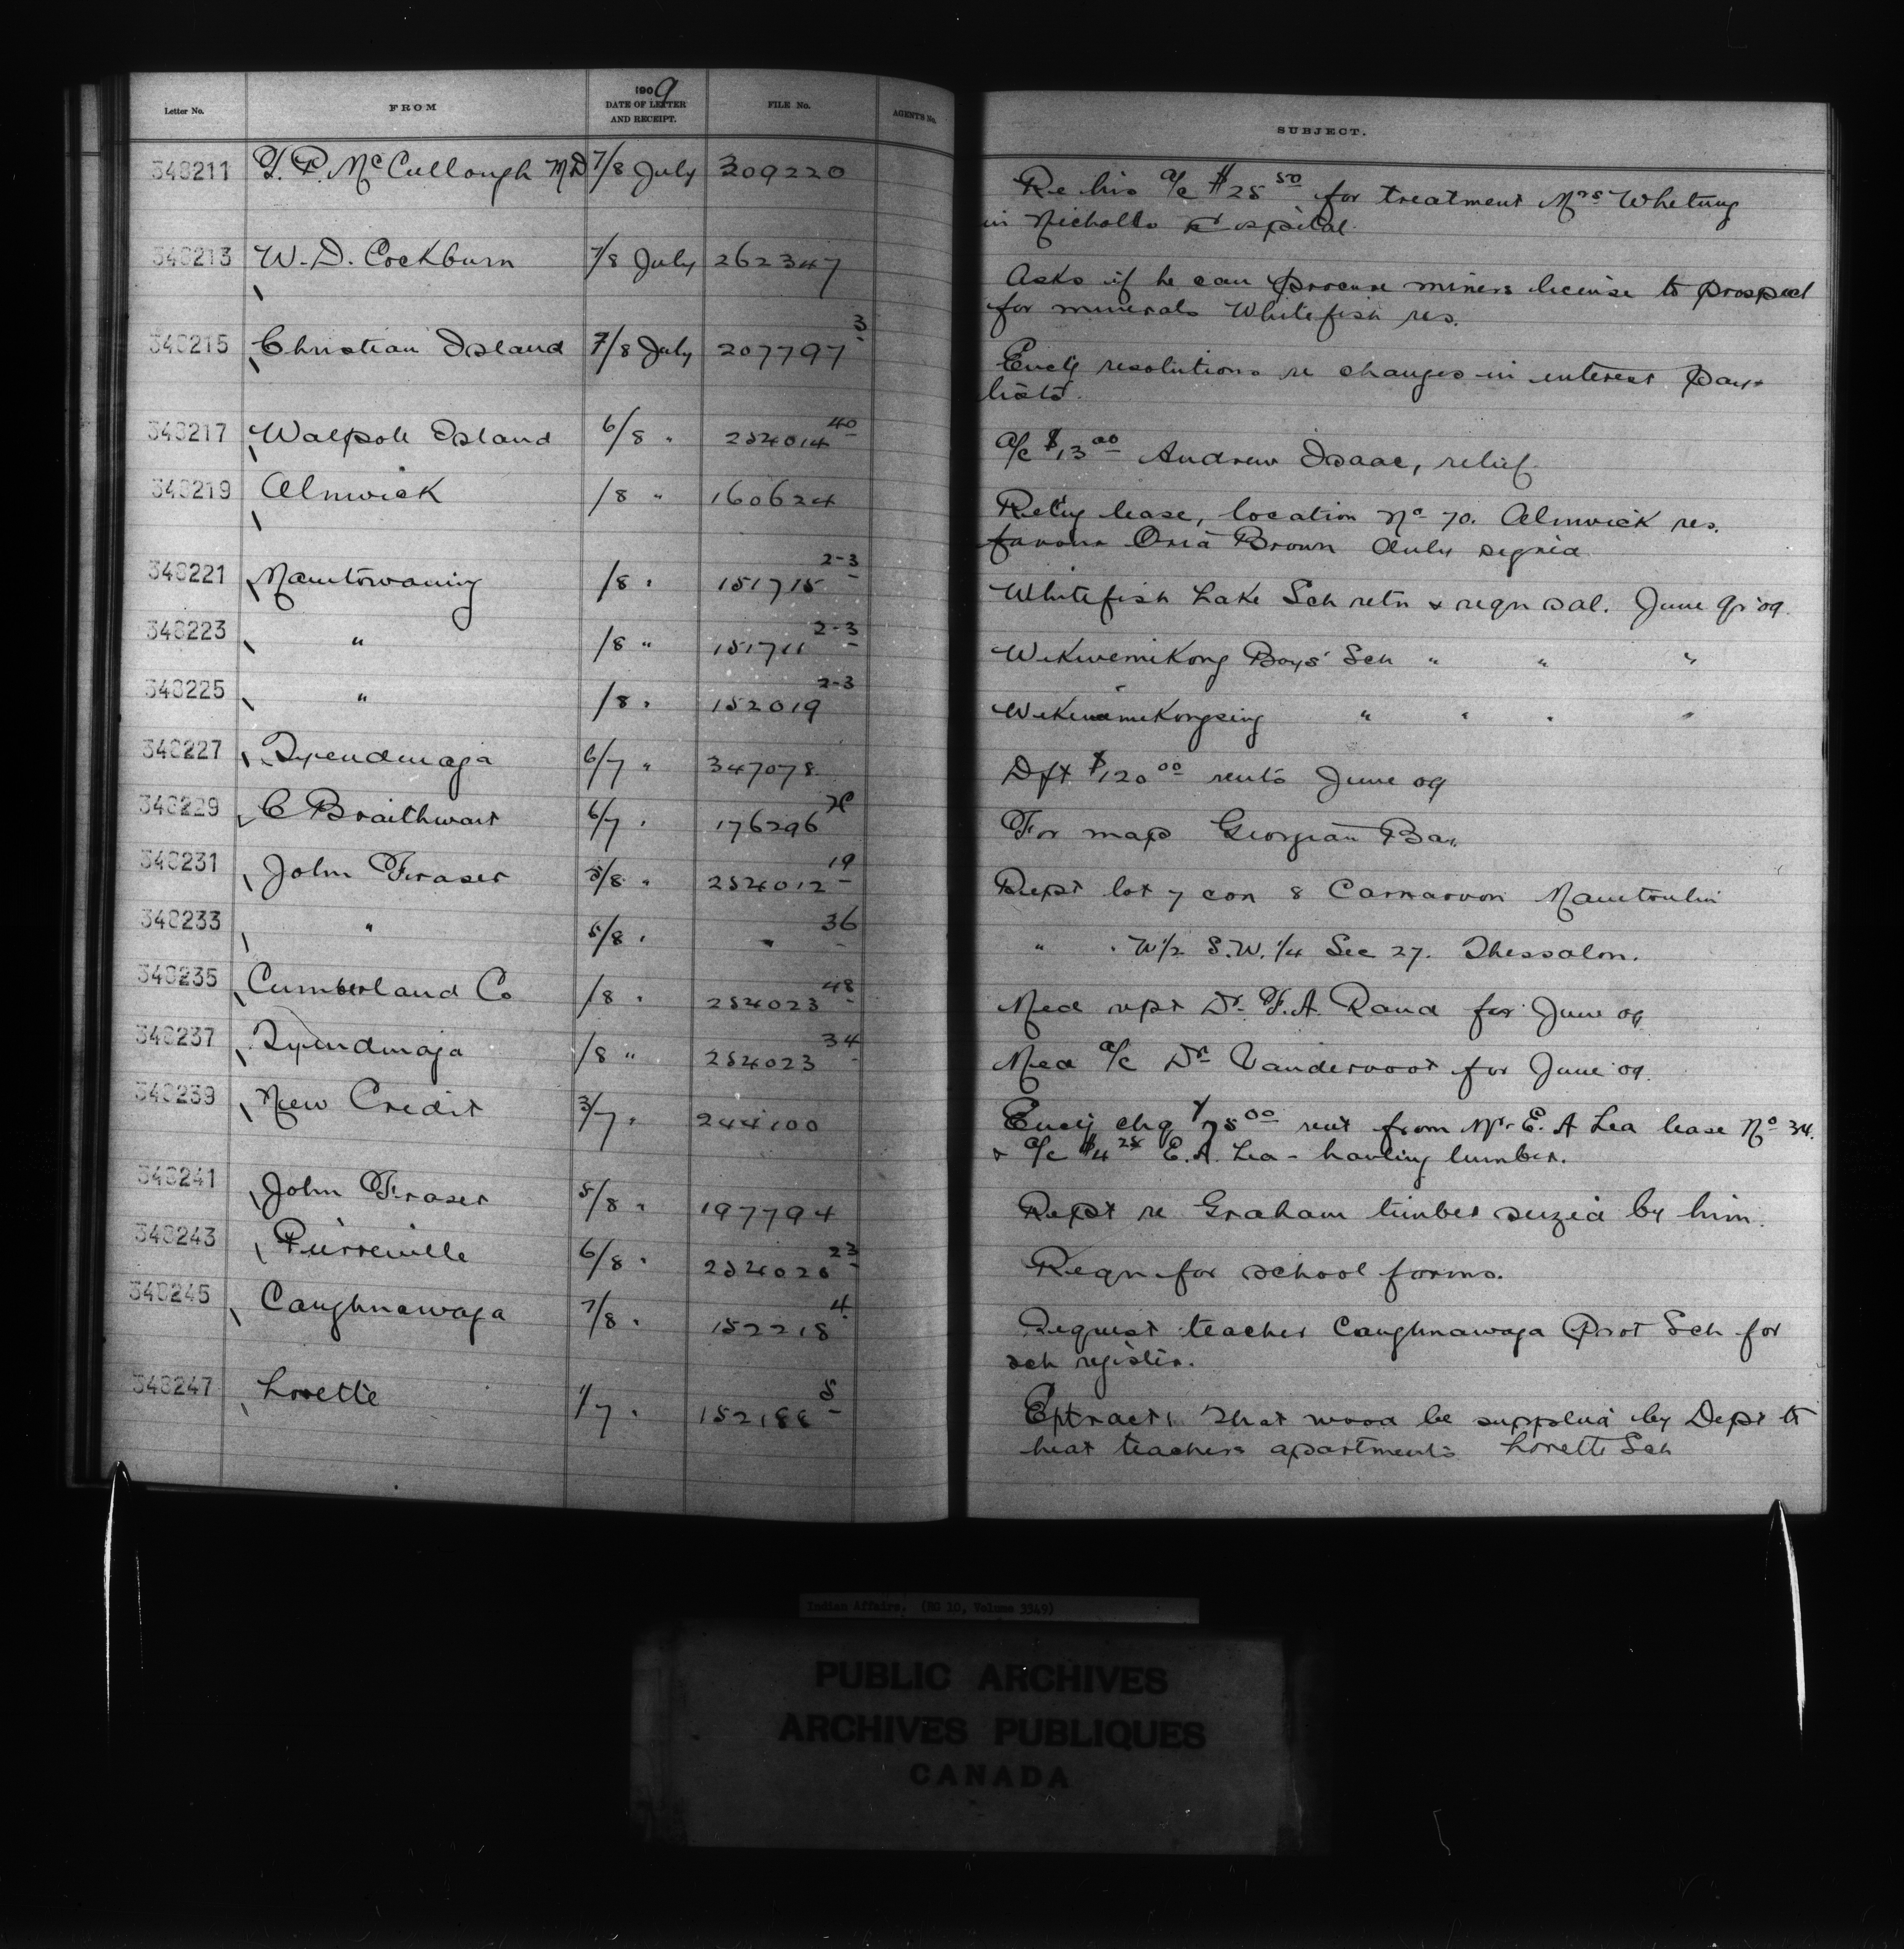 Letter No. FROM 1909 DATE OF LETTER AND RECEIPT. FILE No. AGENT'S No. SUBJECT.
348211 T. P. McCullough MD 7/8 July 309220 Re his a/c $25 50 for treatment Mrs Whetung
in Nicholls Hospital.
348213 W. D. Cockburn 7/8 July 262347 Asks if he can procure miners license to prospect
for minerals Whitefish res.
348215 Christian Island 7/8 July 207797 3 Encl'g resolutions re changes in interest pay
lists.
348217 Walpole Island 6/8 " 254014 40 a/c $13 00 Andrew Isaac, relief.
348219 Alnwick /8 " 160624 Ret'ng lease, location No 70. Alnwick res.
favour Brown duly signed
348221 Manitowaning /8 " 151715 2-3 Whitefish Lake Sch retn & reqn sal. June qr '09.
348223 " /8 " 151711 2-3 Wikwemikong Boys' Sch " " "
348225 " /8 " 152019 2-3 Wikwemikongsing " " " "
348227 Tyendinaga 6/7 " 347078 Dft $120 00 rents June 09
348229 C Braithwait 6/7 " 176296 For map Georgian Bay.
348231 John Fraser 5/8 " 254012 19 Rept lot 7 con 8 Carnarvon Manitoulin
348233 " 5/8 " " 36 " " W1/2 S.W. 1/4 Sec 27. Thessalon.
348235 Cumberland Co /8 " 254023 48 Med rept Dr. F. A. Rand for June 09
348237 Tyendinaga /8 " 254023 34 Med a/c Dr Vandervoort for June 09.
348239 New Credit 3/7 " 244100 Encl'g chq $75 00 rent from Mr E. A Lea lease No 34.
& a/c $4 25 E. A. Lea - hauling lumber.
348241 John Fraser 5/8 " 197794 Rept re Graham timber seized by him.
348243 Pierreville 6/8 " 254025 23 Reqn for school forms.
348245 Caughnawaga 7/8 " 152218 4 Request teacher Caughnawaga Prot Sch for
sch register.
348247 Lorette 1/7 " 152188 5 Extract: That wood be supplied by Dept to
heat teachers apartments Lorette Sch
Indian Affairs. (RG 10, Volume 3349)
PUBLIC ARCHIVES
ARCHIVES PUBLIQUES
CANADA